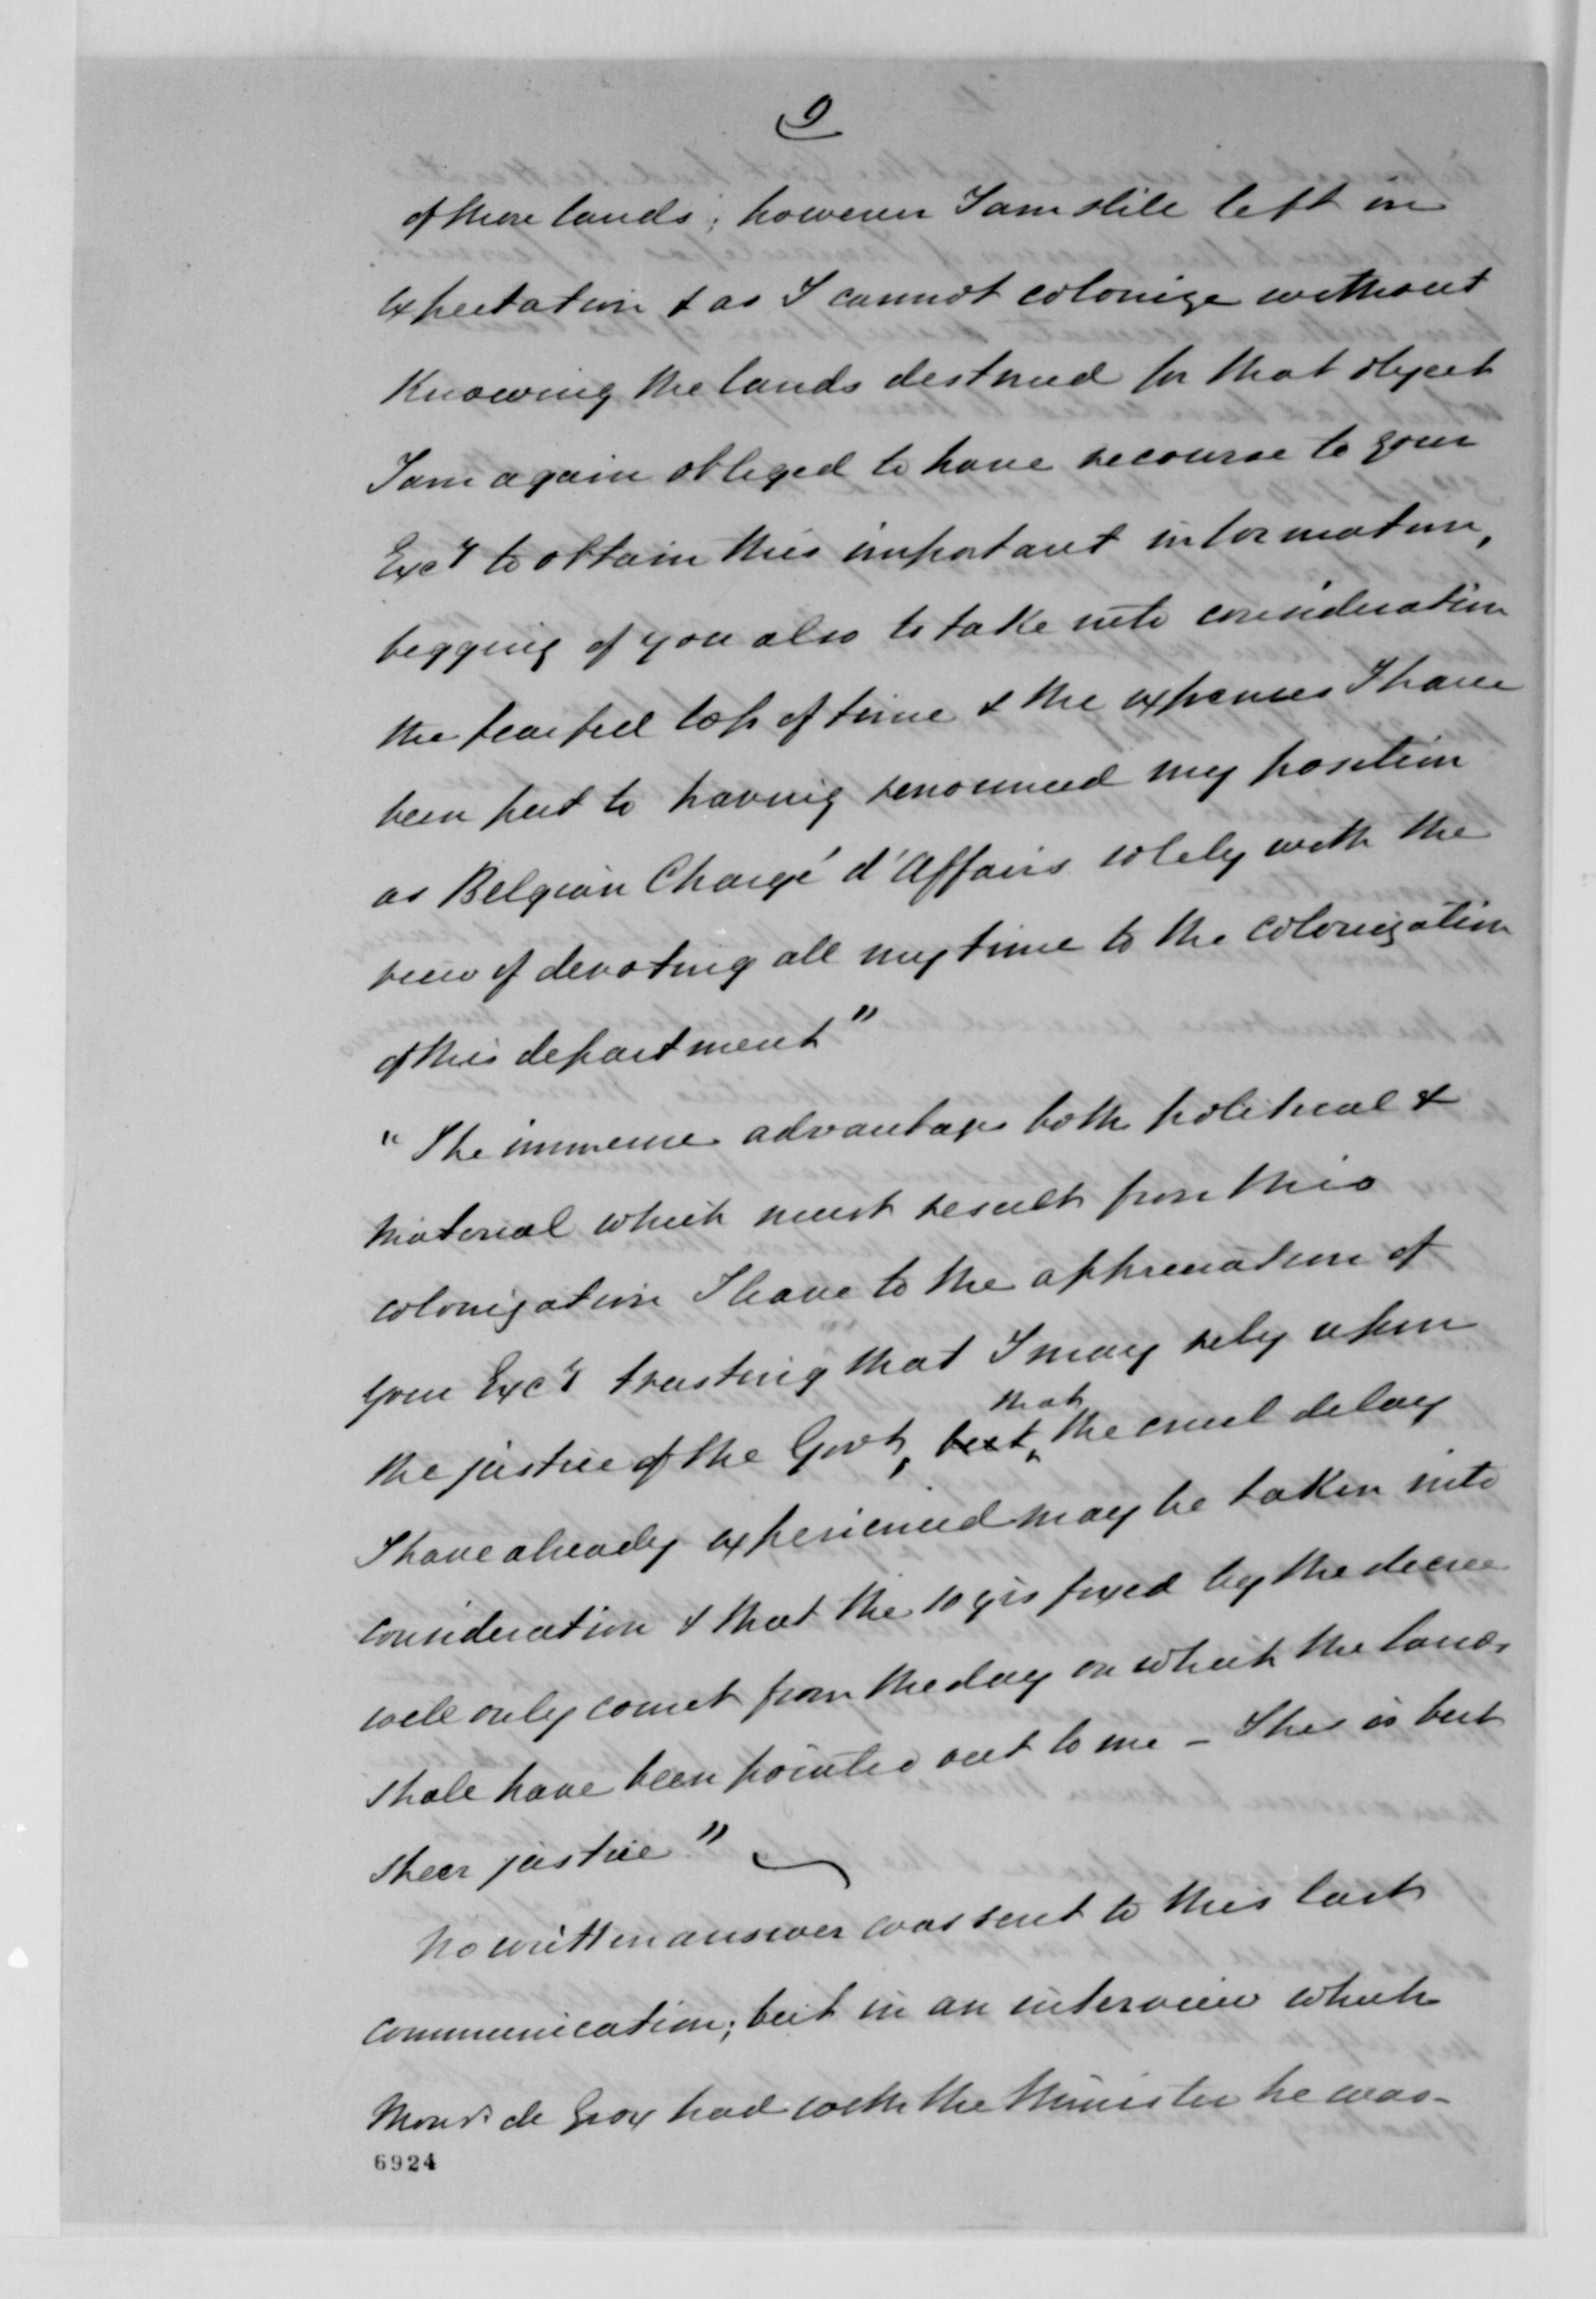 9
of these lands; however I am still left in
expectation & as I cannot colonize without
Knowing the lands destined for that object
I am again obliged to have recourse to your
Excy to obtain this important information,
begging of you also to take into consideration
the fearful loss of time & the expenses I have
been put to having renounced my position
as Belgian Chargé d'Affairs solely with the
view of devoting all my time to the colonization
of this department"
"The immense advantages both political &
material which must result from this
colonization I leave to the appreciation of
your Excy trusting that I may rely upon
the justice of the Govt, but that the cruel delay
I have already experienced may be taken into
consideration & that the 10 yrs fixed by the decree
will only count from the day on which the lands
shall have been pointed out to me – This is but
sheer justice"
No written answer was sent to this last
communication; but in an interview which
Monsr de Grox had with the Minister he was
6924